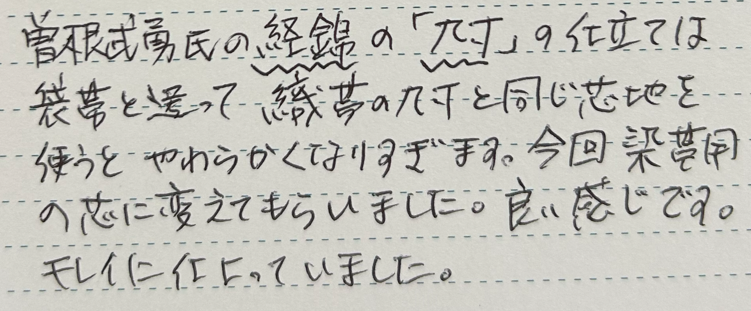 曽根武勇氏の経錦の「八寸」の仕立ては
袋帯と違って織夢の八寸と同じ芯地を
使うとやわらかくなりすぎます。今回染夢用
の芯に変えてもらいました。良い感じです。
キレイに仕上っていました。